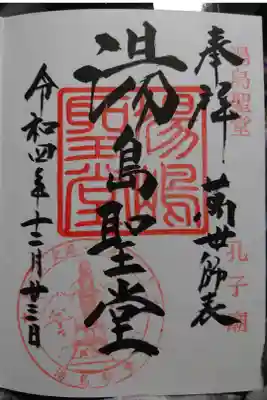 湯島聖堂
奉拝 萬世師表
孔子廟
湯島聖堂
湯島聖堂
令和四年十二月廿三日